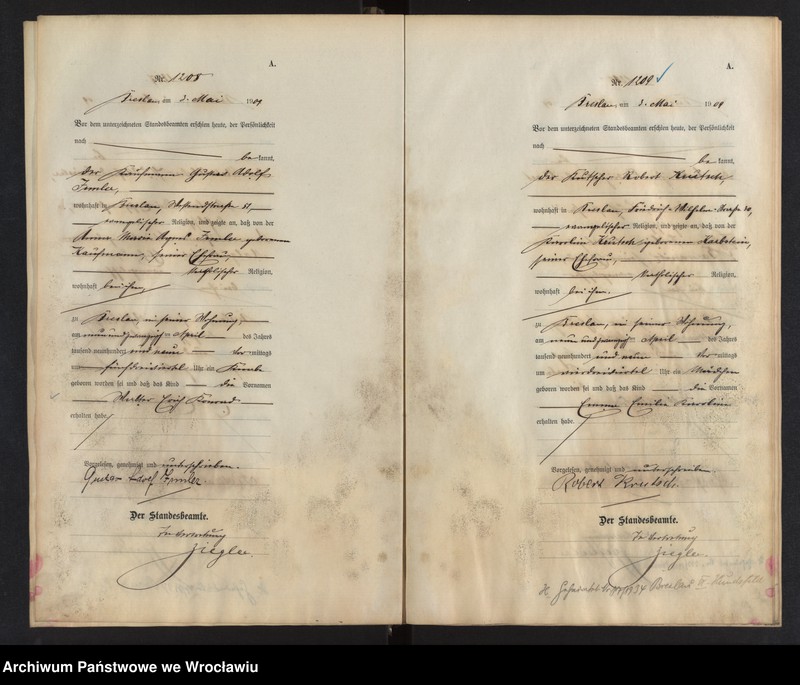 A.
Nr. 1208
Breslau, am 3. Mai 1909
Vor dem unterzeichneten Standesbeamten erschien heute, der Persönlichkeit
nach
be kannt,
der Kaufmann Gustav Adolf
wohnhaft in Breslau, 51,
evangelischer Religion, und zeigte an, daß von der
Anna Maria Agnes geborenen
Kaufmann, seiner Ehefrau,
katholischer Religion,
wohnhaft bei ihm,
zu Breslau, in seiner Wohnung,
am neunundzwanzigsten April des Jahres
tausend neunhundert und neun vor mittags
um Uhr ein Knabe
geboren worden sei und daß das Kind die Vornamen
Walter Erich Konrad
erhalten habe.
Vorgelesen, genehmigt und unterschrieben.
Gustav Adolf
Der Standesbeamte.
In Vertretung
Ziegler.
A.
Nr. 1209
Breslau, am 3. Mai 1909
Vor dem unterzeichneten Standesbeamten erschien heute, der Persönlichkeit
nach
be kannt,
der Kutscher Robert
wohnhaft in Breslau, Friedrich Wilhelm-Straße
evangelischer Religion, und zeigte an, daß von der
geborenen
seiner Ehefrau,
katholischer Religion,
wohnhaft bei ihm.
zu Breslau, in seiner Wohnung,
am neunundzwanzigsten April des Jahres
tausend neunhundert und neun vor mittags
um Uhr ein Mädchen
geboren worden sei und daß das Kind die Vornamen
Emma Emilie
erhalten habe.
Vorgelesen, genehmigt und unterschrieben.
Robert
Der Standesbeamte.
In Vertretung
Ziegler.
Breslau
Archiwum Państwowe we Wrocławiu